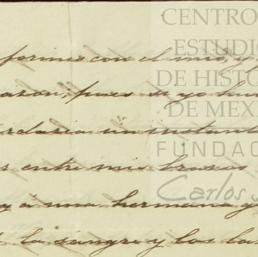 CENTRO
ESTUDIO
DE HISTO
DE MEXI
FUNDAC
Carlos S
formes con el mio, y
razon; pues si yo hu
un instant
s entre mis brazos
y á una hermana q
la sangre y los la